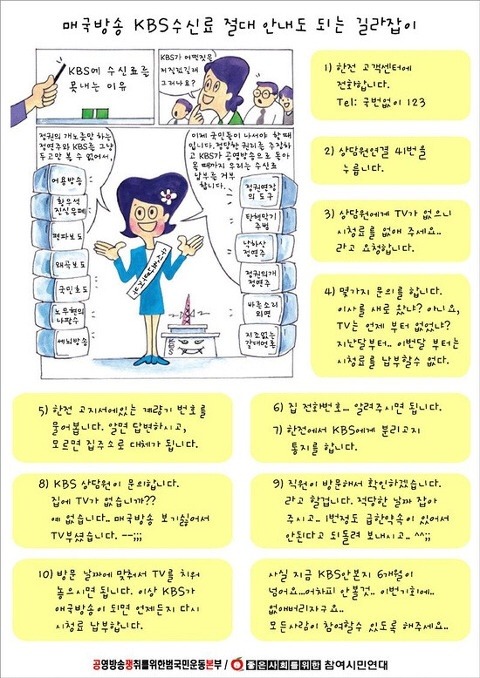 매국방송 KBS수신료 절대 안내도 되는 길라잡이
KBS에 수신료를
못내는 이유
KBS가 어떡짓을
저질렀길래
그러나요?
정권의 개노릇만 하는
정연주와 KBS를 그냥
두고만 볼 수 없어서,
이제 국민들이 나서야 할때
입니다. 정당한 권리를 주장하
고 KBS가 공영방송으로 돌아
올 때까지 우리는 수신료
납부를 거부
합니다.
어용방송
황우석
진실은폐
편파보도
왜곡보도
국민호도
노무현의
나팔수
세뇌방송
수신료납부거부
정권연장
의 도구
탄핵악기
주범
낙하산
정연주
정권의개
정연주
바른소리
외면
지조없는
갈대언론
KBS
1) 한전 고객센터에
전화합니다.
Tel: 국번없이 123
2) 상담원연결 41번을
누릅니다.
3) 상담원에게 TV가 없으니
시청료를 없애 주세요..
라고 요청합니다.
4) 몇가지 문의를 합니다.
이사를 새로 왔냐? 아니요,
TV는 언제 부터 없었냐?
지난달부터.. 이번달 부터는
시청료를 납부할수 없다.
5) 한전 고지서에있는 계량기 번호를
물어봅니다. 알면 답변하시고,
모르면 집주소로 대체가 됩니다.
6) 집 전화번호... 알려주시면 됩니다.
7) 한전에서 KBS에게 분리고지
통지를 합니다.
8) KBS 상담원이 문의합니다.
집에 TV가 없습니까??
예 없습니다.. 매국방송 보기싫어서
TV부셨습니다. --;;;
9) 직원이 방문해서 확인하겠습니다.
라고 할겁니다. 적당한 날짜 잡아
주시고.. 1번정도 급한약속이 있어서
안된다고 되돌려 보내시고.. ^^;;
10) 방문 날짜에 맞춰서 TV를 치워
놓으시면 됩니다. 이상 KBS가
애국방송이 되면 언제든지 다시
시청료 납부합니다.
사실 지금 KBS안본지 6개월이
넘어요...어차피 안볼것.. 이번기회에..
없애버리자구요..
모든사람이 참여할수 있도록 해주세요..
공영방송쟁취를위한범국민운동본부 / 좋은사회를위한 참여시민연대